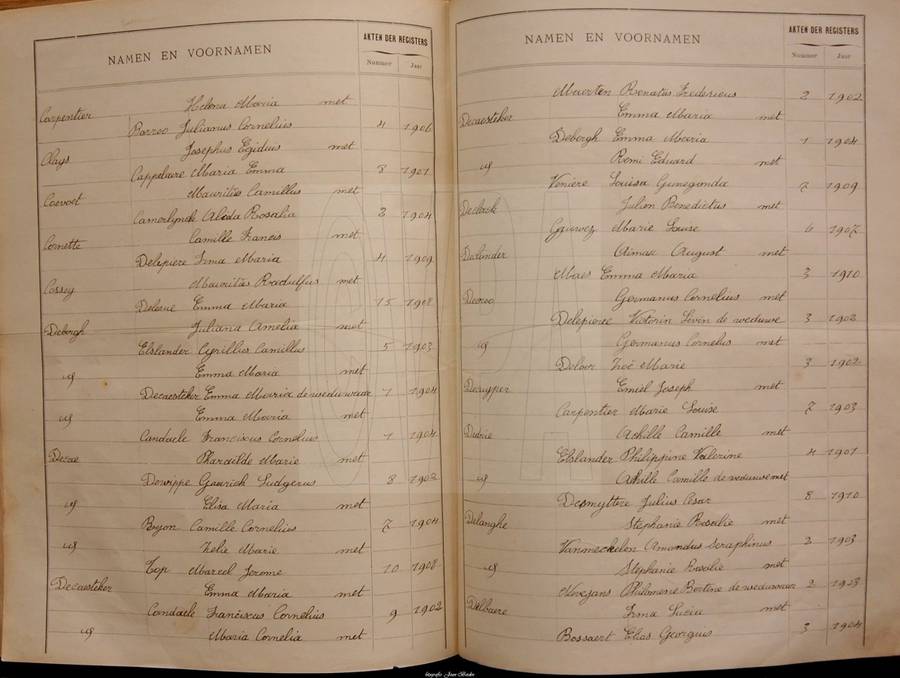 NAMEN EN VOORNAMEN AKTEN DER REGISTERS
Nummer Jaar
Carpentier Helena Maria met
Parreo Julianus Cornelius 4 1906
Clays Josephus Egidius met
Cappelaere Maria Emma 3 1901
Coevoet Mauritius Camillus met
Camerlynck Aleida Rosalia 2 1904
Cornette Camille Francis met
Delepiere Irma Maria 4 1909
Cossey Mauritius Radulfus met
Delerue Emma Maria 15 1908
Debergh Juliana Amelia met
Elslander Cyrillus Camillus 5 1903
id Emma Maria met
Decaesteker Emma Maria de weduwaar 1 1904
id Emma Maria met
Candaele Franciscus Cornelius 1 1904
Decae Pharaïlde Marie met
Dewippe Gaürich Ludgerus 8 1902
id Elisa Maria met
Bryon Camille Cornelius 7 1904
id Zelie Marie met
Top Marcel Jerome 10 1908
Decaesteker Emma Maria met
Candaele Franciscus Cornélius 9 1902
id Maria Cornelia met
NAMEN EN VOORNAMEN AKTEN DER REGISTERS
Nummer Jaar
Maerten Renatus Fredericus 2 1902
Decaesteker Emma Maria met
Debergh Emma Maria 1 1904
id Remi Eduard met
Veniere Louisa Gunegonda 7 1909
Declerck Julien Benedictus met
Gauwez Marie Louise 6 1907
Deslander Aimae August met
Maes Emma Maria 3 1910
Decroo Germanus Cornelius met
Delepierre Victorin Levin de weduwe 3 1902
id Germanus Cornelus met
Deloor Zoë Marie 3 1902
Decuyper Emiel Joseph met
Carpentier Marie Louise 7 1903
Dedrie Achille Camille met
Elslander Philippine Valerine 4 1901
id Achille Camille de weduwe met
Desmyttere Julius Cesar 8 1910
Delanghe Stephanie Rosalie met
Vanmechelen Amandus Seraphinus 2 1903
id Stephanie Rosalie met
Mevezans Philomene Bertine de weduwaar 2 1903
Delbaere Irma Lucia met
Bossaert Elias Georgius 3 1904